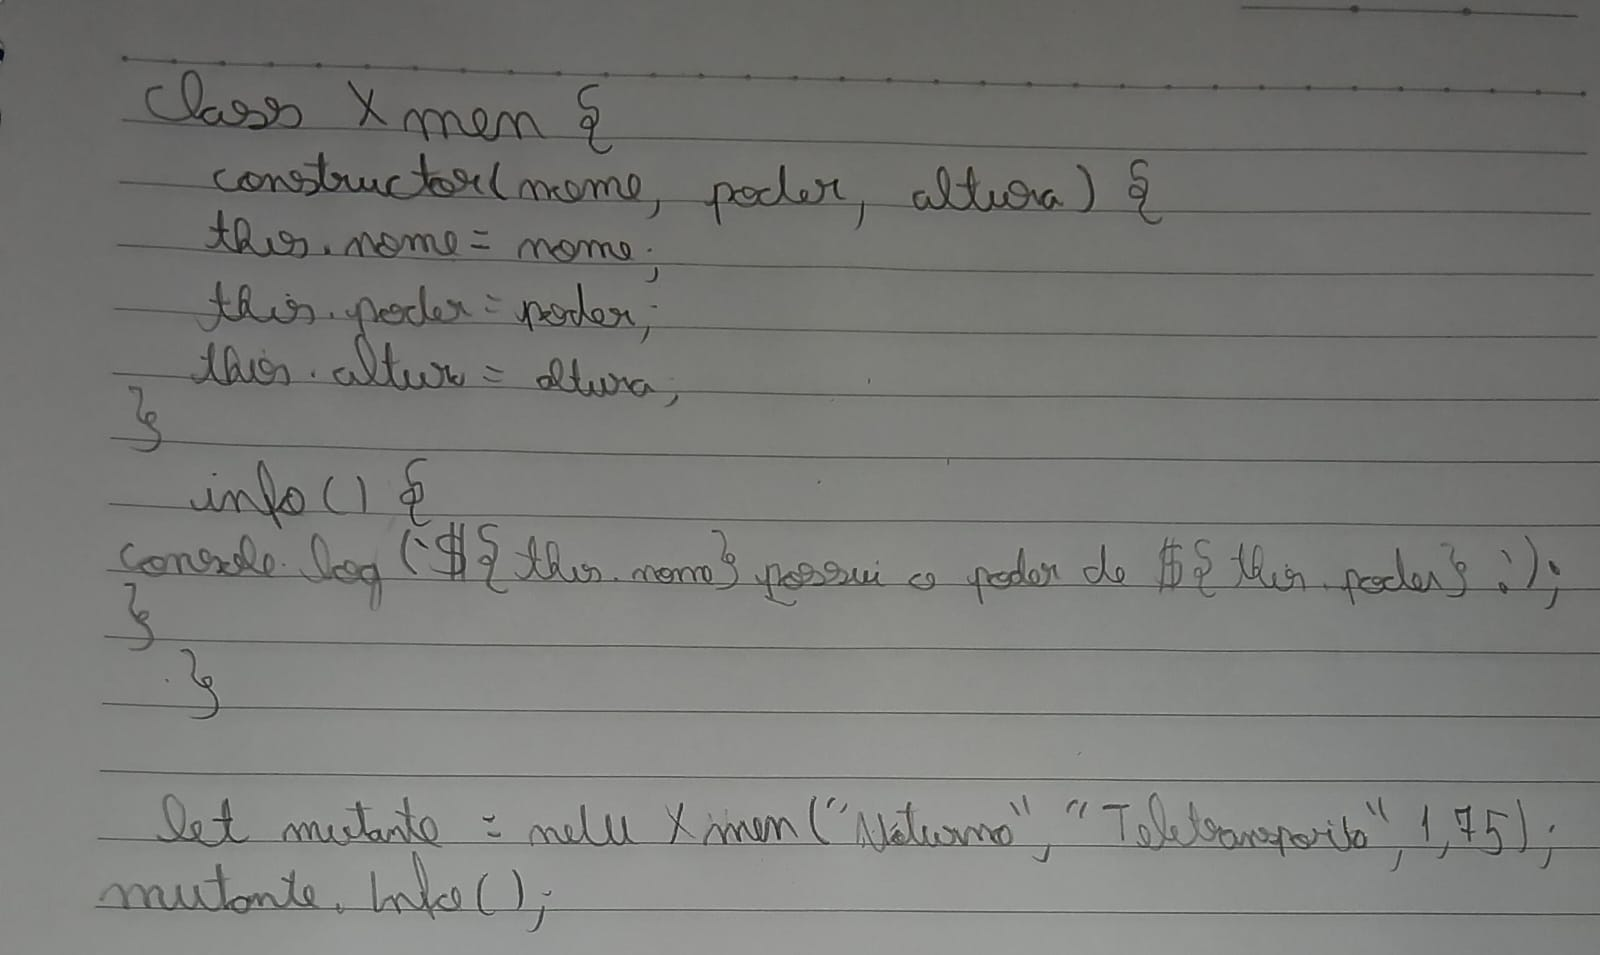 Class Xmen {
constructor(nome, poder, altura) {
this.nome = nome;
this.poder = poder;
this.altur = altura;
}
info() {
console.log(`${this.nome} possui o poder de ${this.poder}.`);
}
}
let mutante = new Xmen("Noturno", "Teletransporito", 1,75);
mutante.Info();